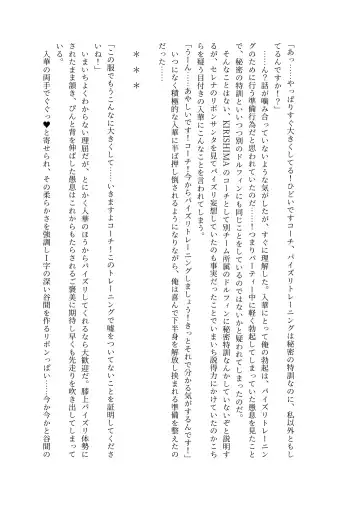 「あっ……やっぱりすぐ大きくしてる！ひどいですコーチ、パイズリトレーニングは秘密の特訓なのに、私以外ともし
てるんですか！？」
……ん？話が噛み合っていないような気がしたが、すぐに理解した。入華にとって俺の勃起は、パイズリトレーニン
グのために行う準備行為だと思われていたのだ……！つまりパーティー中に軽く勃起してしまっていた愚息を見たこと
で、秘密の特訓といいつつ別のドルフィンにも同じことをしているのではないかと疑われてしまったのだ。
そんなことはない、KIRISHIMAのコーチとして別チーム所属のドルフィンに秘密特訓なんかしていないぞと説明す
るが、セレナのリボンサンタを見てパイズリ妄想していたのも事実だったことでいまいち説得力にかけていたのかこち
らを疑う目付きの入華にこんなことを言われてしまう。
「うーん……あやしいです！コーチ！今からパイズリトレーニングしましょう！きっとそれで分かる気がするんです！」
いつになく積極的な入華に半ば押し倒されるようになりながら、俺は喜んで下半身を解放し挟まれる準備を整えたの
だった……
＊　＊　＊
「この服でもうこんなに大きくして……いきますよコーチ！このトレーニングで嘘をついてないことを証明してくださ
いね！」
いまいちよくわからない理屈だが、とにかく入華のほうからパイズリしてくれるなら大歓迎だ。膝上パイズリ体勢に
されたまま頷き、ぴんと背を伸ばした愚息はこれからもたらされるご褒美に期待し早くも先走りを吹き出してしまって
いる。
入華の両手でぐぐっ♥と寄せられ、その柔らかさを強調しI字の深い谷間を作るリボンっぱい……今か今かと谷間の